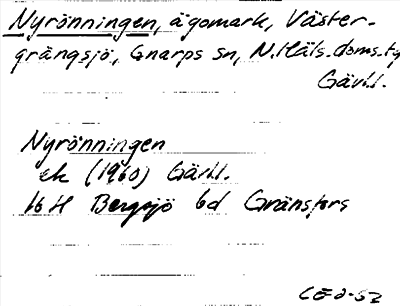 Nyrönningen, ägomark, Väster-
grängsjö, Gnarps sn, N. Häls. doms. tg
Gävl.l.
Nyrönningen
ek (1960) Gävl.l.
16 H Bergsjö 6d Gränsfors